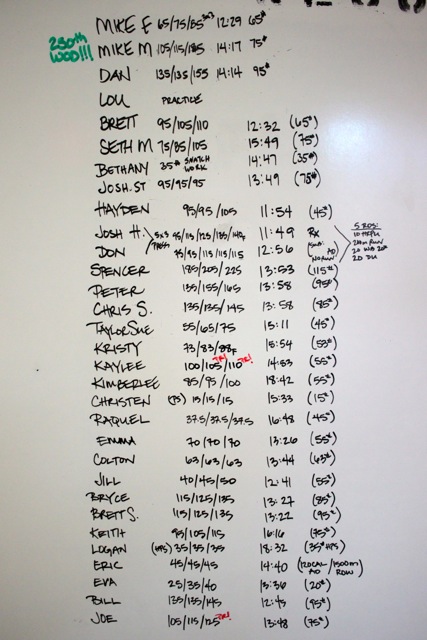 MIKE F 65/75/85 x3 12:29 65#
250th WOD!!! MIKE M 105/115/185 14:17 75#
DAN 135/135/155 14:14 95#
LOU PRACTICE
BRETT 95/105/110 12:32 (65#)
SETH M 75/85/105 15:49 (75#)
BETHANY 35# SNATCH WORK 14:47 (35#)
JOSH.ST 95/95/95 13:49 (75#)
HAYDEN 95/95/105 11:54 (45#)
JOSH H. 5x3 PRESS 11:49 RX
5 RDS:
DON 95/95/115/115/115 12:56
20 DU
SPENCER 185/205/225 13:53 (115#)
PETER 135/155/165 13:58 (95#)
CHRIS S. 135/135/145 13:58 (85#)
TAYLOR SUE 55/65/75 15:11 (45#)
KRISTY 73/83/88F 15:54 (53#)
KAYLEE 100/105 PR!/110 PR! 14:53 (55#)
KIMBERLEE 85/95/100 18:42 (55#)
CHRISTEN (PS) 15/15/15 15:33 (15#)
RAQUEL 37.5/37.5/37.5 16:48 (45#)
EMMA 70/70/70 13:26 (55#)
COLTON 63/63/63 13:44 (63#)
JILL 40/45/50 12:41 (55#)
BRYCE 115/125/135 13:27 (85#)
BRETT S. 115/125/135 13:22 (95#)
KEITH 95/105/115 16:16 (75#)
LOGAN (HPS) 35/35/35 18:32 (35# HPS)
ERIC 45/45/45 14:40 (120CAL AD /1500m ROW)
EVA 25/35/40 13:36 (20#)
BILL 135/135/145 12:45 (95#)
JOE 105/115/125 PR! 13:48 (75#)